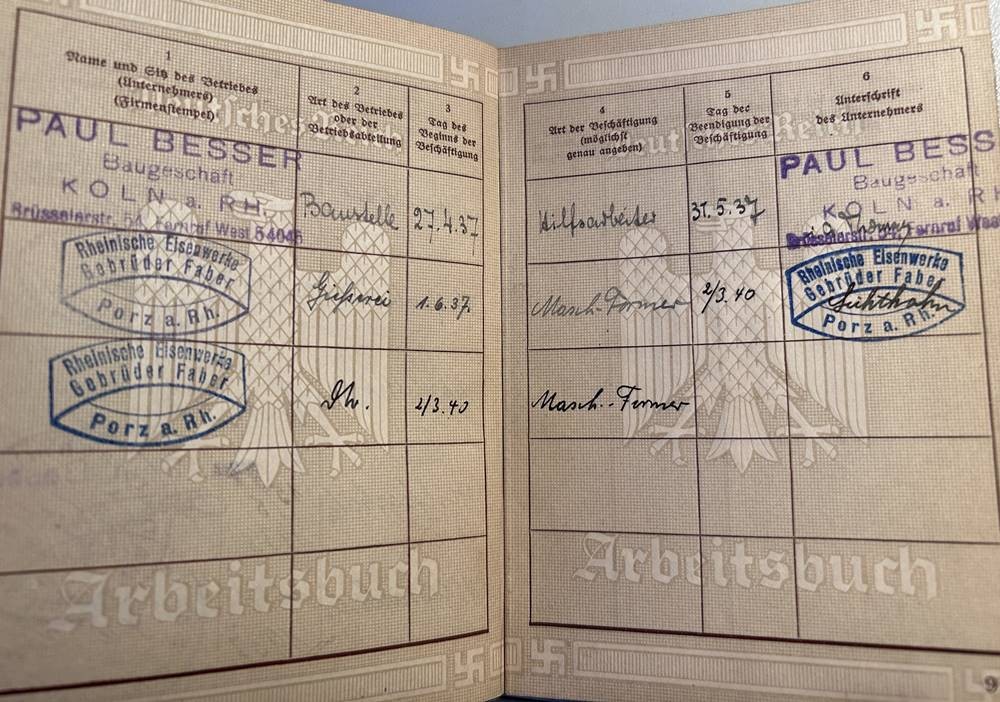 1
Name und Sitz des Betriebes
(Unternehmers)
(Firmenstempel)
2
Art des Betriebes
oder der
Betriebsabteilung
3
Tag des
Beginns der
Beschäftigung
PAUL BESSER
Baugeschäft
KÖLN a. RH.
Brüsselerstr. 54 Fernruf West 54045
Baustelle
27.4.37
Rheinische Eisenwerke
Gebrüder Faber
Porz a. Rh.
Gießerei
1.6.37.
Rheinische Eisenwerke
Gebrüder Faber
Porz a. Rh.
2/3.40
Deutsches Reich
Arbeitsbuch
4
Art der Beschäftigung
(möglichst
genau angeben)
5
Tag der
Beendigung der
Beschäftigung
6
Unterschrift
des Unternehmers
Hilfsarbeiter
31.5.37
PAUL BESS
Baugeschäft
KOLN a. R
Fernruf Wes
Masch.-Former
2/3.40
Rheinische Eisenwerke
Gebrüder Faber
Porz a. Rh.
Masch.-Former
Arbeitsbuch
9